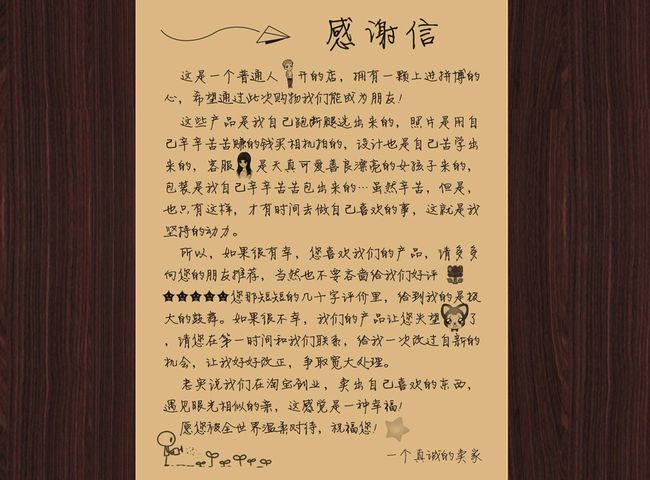 感谢信
这是一个普通人开的店，拥有一颗上进拼博的
心，希望通过此次购物我们能成为朋友！
这些产品是我自己跑断腿选出来的，照片是用自
己辛辛苦苦赚的钱买相机拍的，设计也是自己苦学出
来的，客服是天真可爱善良漂亮的女孩子来的，
包装是我自己辛辛苦苦包出来的…虽然辛苦，但是，
也只有这样，才有时间去做自己喜欢的事，这就是我
坚持的动力。
所以，如果很有幸，您喜欢我们的产品，请多多
向您的朋友推荐，当然也不要吝啬给我们好评
★★★★★您那短短的几十字评价里，给到我的是极
大的鼓舞。如果很不幸，我们的产品让您失望了
，请您在第一时间和我们联系，给我一次改过自新的
机会，让我好好改正，争取宽大处理。
老实说我们在淘宝创业，卖出自己喜欢的东西，
遇见眼光相似的亲，这感觉是一种幸福！
愿您被全世界温柔对待，祝福您！
一个真诚的卖家